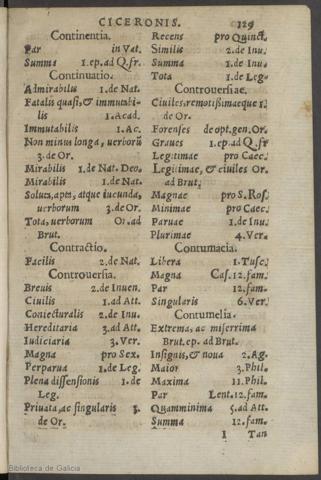 CICERONIS. 129
Continentia.
Par in Vat.
Summa 1.ep.ad Q.fr.
Continuatio.
Admirabilis 1.de Nat.
Fatalis quasi, & immutabi-
lis 1.Acad.
Immutabilis 1.Ac.
Non minus longa, uerborū
3.de Or.
Mirabilis 1.de Nat. Deo.
Mirabilis 1.de Nat.
Soluta, apta, atque iucunda,
uerborum 3.de Or.
Tota, uerborum Or.ad
Brut.
Contractio.
Facilis 2.de Nat.
Controuersia.
Breuis 2.de Inuen.
Ciuilis 1.ad Att.
Coniecturalis 2.de Inu.
Hereditaria 3.ad Att.
Iudiciaria 3.Ver.
Magna pro Sex.
Perparua 1.de Leg.
Plena dissensionis 1.de
Leg.
Priuata, ac singularis 3.
de Or.
Recens pro Quinct.
Similis 2.de Inu.
Summa 1.de Inu.
Tota 1.de Leg.
Controuersiae.
Ciuiles, remotissimaeque 1.
de Or.
Forenses de opt.gen.Or.
Graues 1.ep.ad Q.fr
Legitimae pro Caec.
Legitimae, & ciuiles Or.
ad Brut.
Magnae pro S.Ros.
Minimae pro Caec.
Paruae 1.de Inu.
Plurimae 4.Ver.
Contumacia.
Libera 1.Tusc.
Magna Cas.12.fam.
Par 12.fam.
Singularis 6.Ver.
Contumelia.
Extrema, ac miserrima
Brut.ep.ad Brut.
Insignis, & noua 2.Ag.
Maior 3.Phil.
Maxima 11.Phil.
Par Lent.12.fam.
Quamminima 5.ad Att.
Summa 12.fam.
I Tan
Biblioteca de Galicia